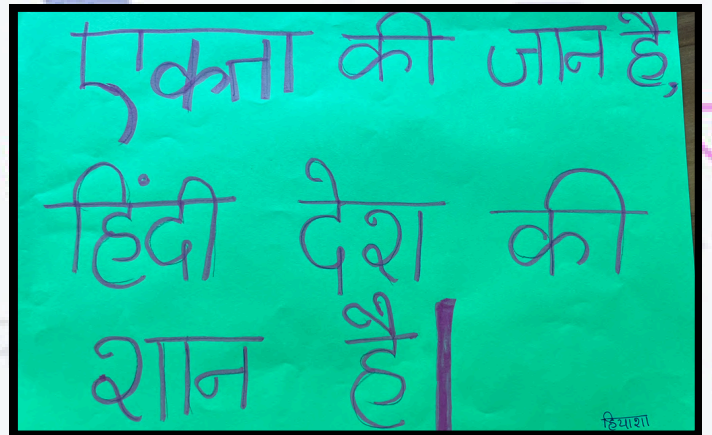 एकता की जान है,
हिंदी देश की
शान है।
हियाशा